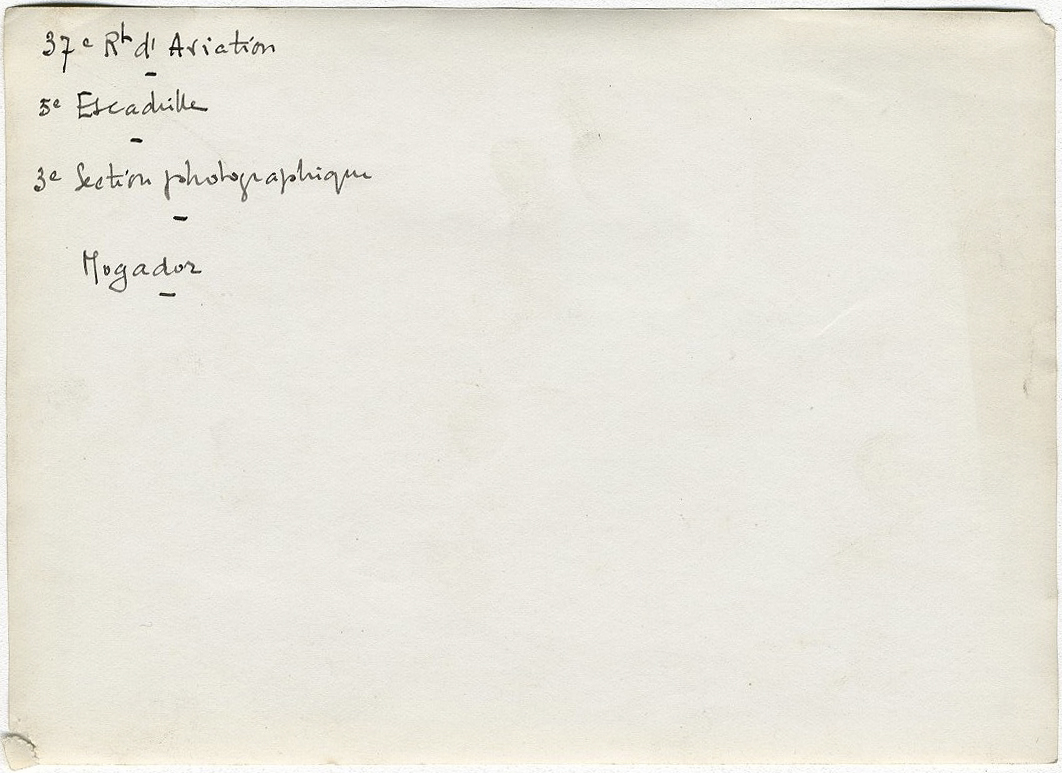 37e Rt d'Aviation
5e Escadrille
3e Section photographique
Mogador